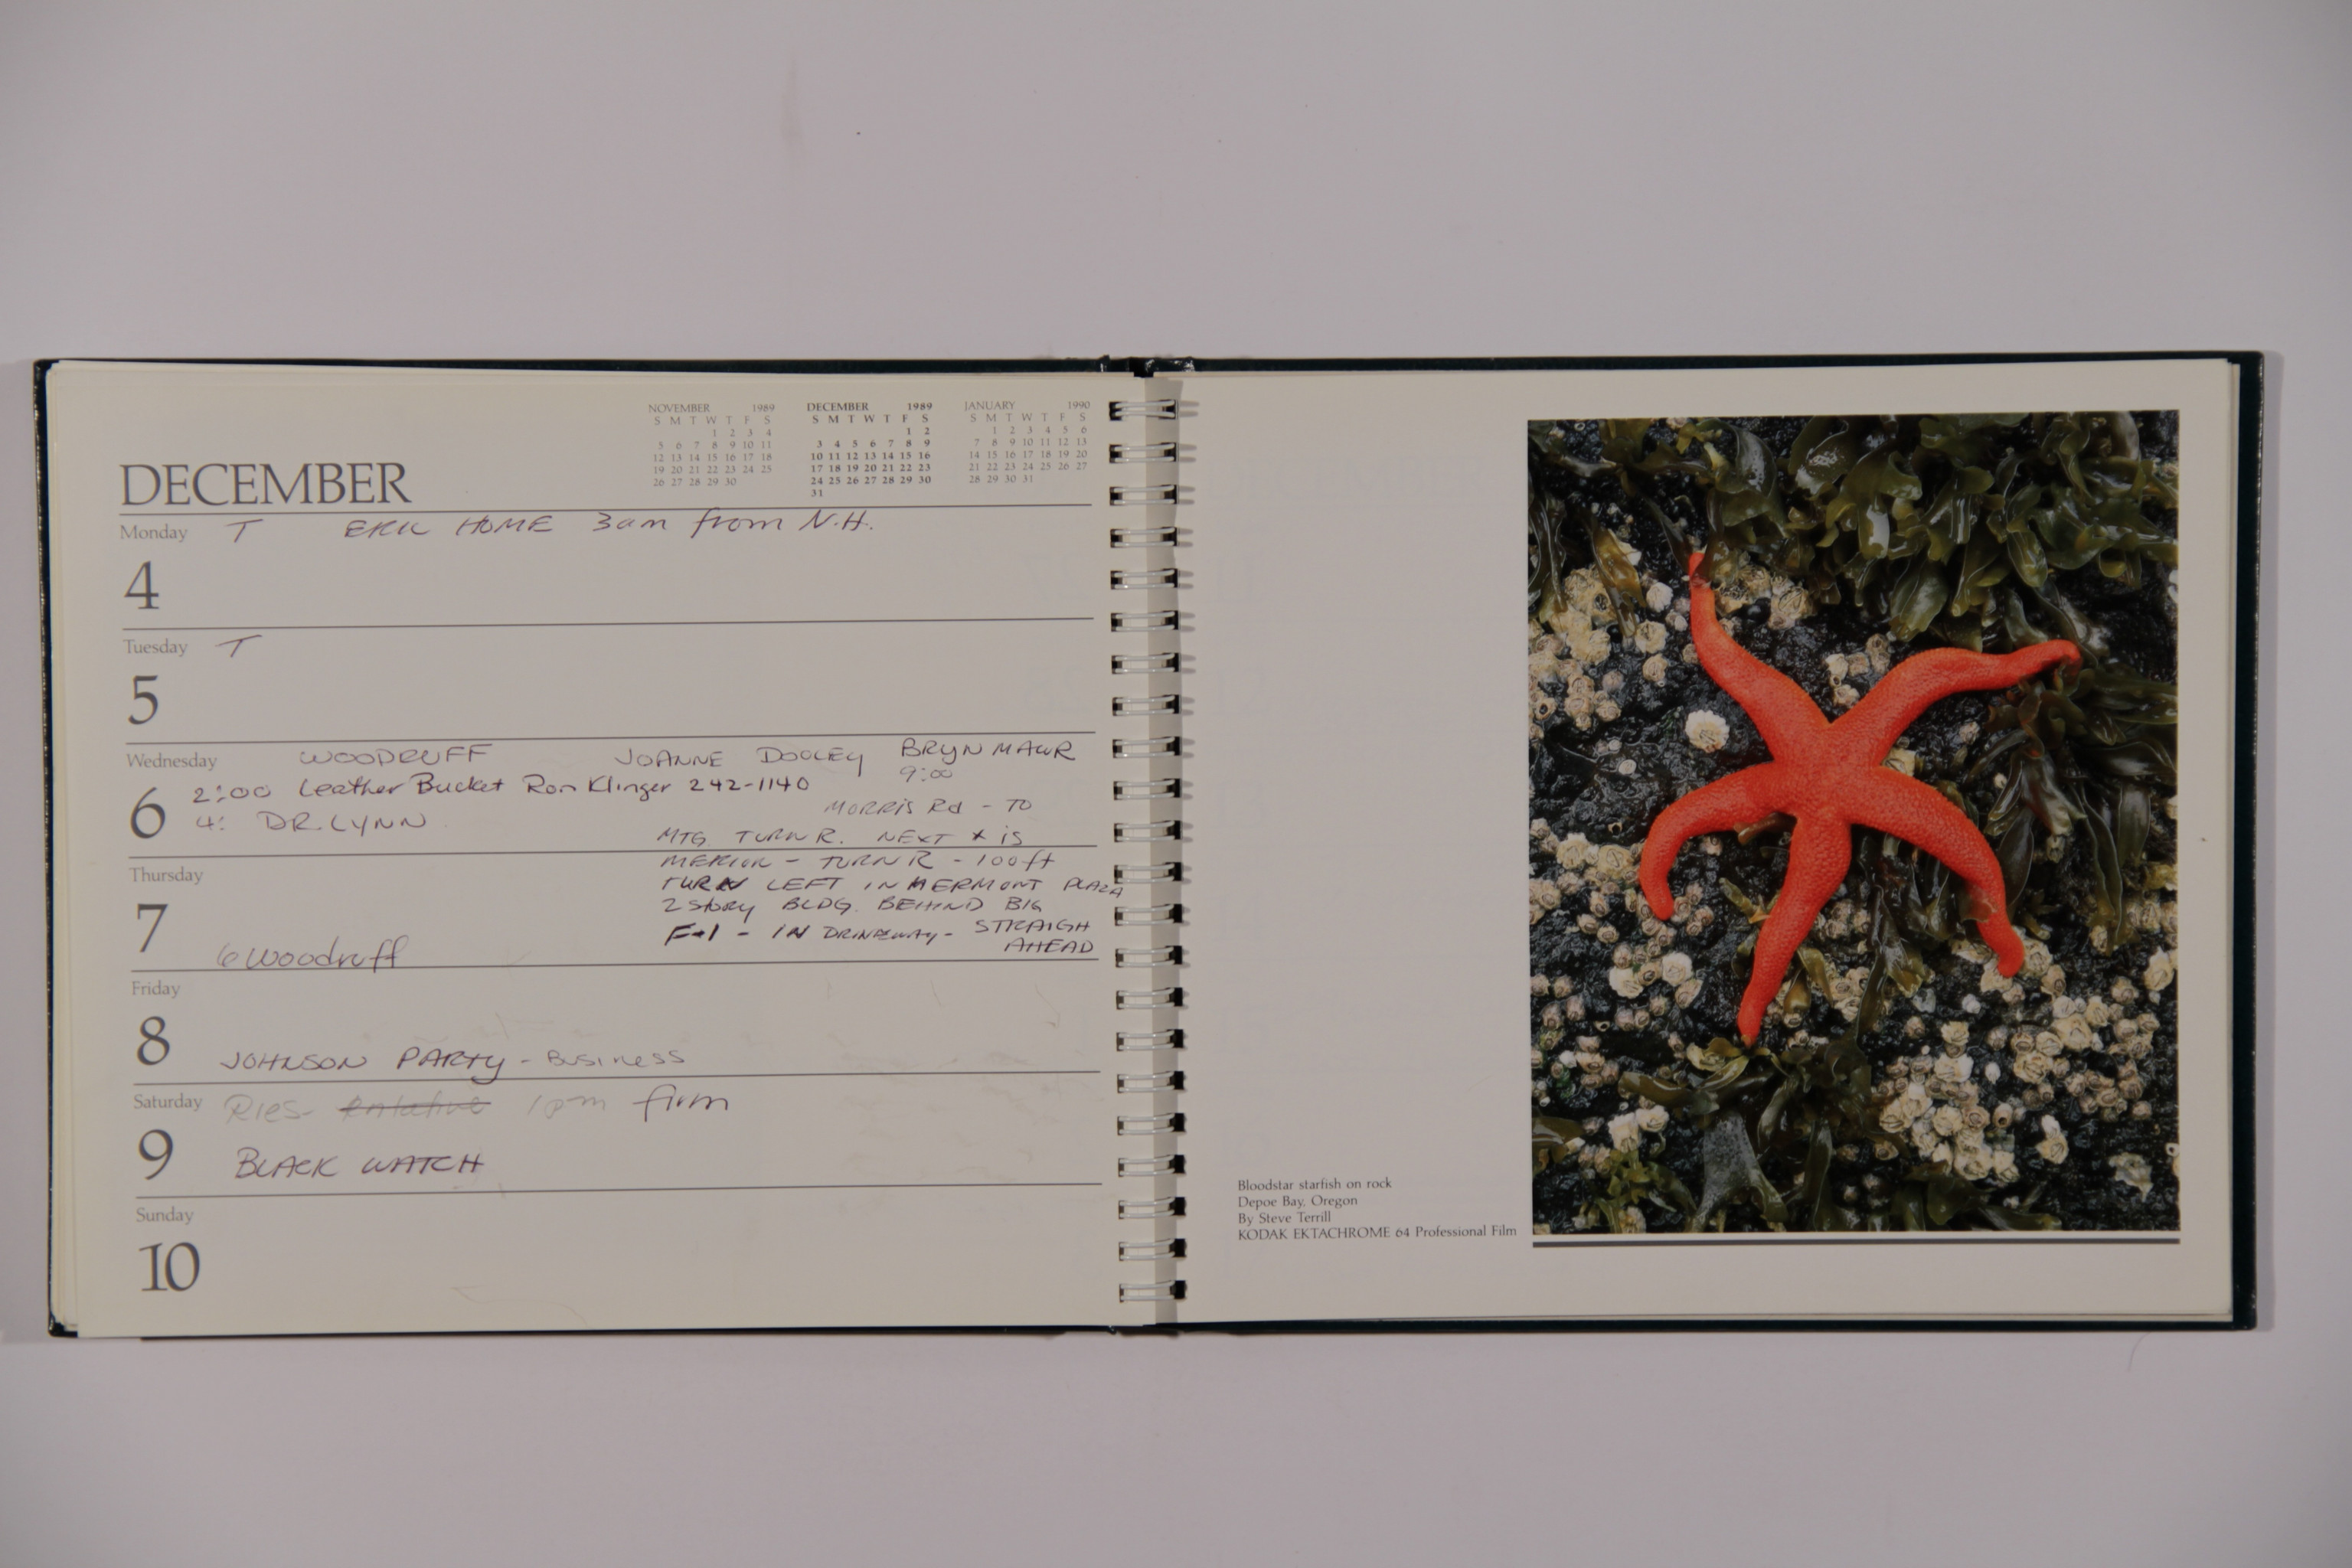 NOVEMBER 1989
S M T W T F S
1 2 3 4
5 6 7 8 9 10 11
12 13 14 15 16 17 18
19 20 21 22 23 24 25
26 27 28 29 30
DECEMBER 1989
S M T W T F S
1 2
3 4 5 6 7 8 9
10 11 12 13 14 15 16
17 18 19 20 21 22 23
24 25 26 27 28 29 30
31
JANUARY 1990
S M T W T F S
1 2 3 4 5 6
7 8 9 10 11 12 13
14 15 16 17 18 19 20
21 22 23 24 25 26 27
28 29 30 31
DECEMBER
Monday T ERIC HOME 3am from N.H.
4
Tuesday T
5
Wednesday WOODRUFF JOANNE DOOLEY BRYN MAWR
9:00
6 2:00 Leather Bucket Ron Klinger 242-1140
4: DR. LYNN
MORRIS Rd - TO
MTG TURN R. NEXT * is
MERION - TURN R - 100ft
TURN LEFT IN HERMONT PLAZA
2 story BLDG. BEHIND BIG
- IN DRIVEWAY - STRAIGH
AHEAD
Thursday
7 6 Woodruff
Friday
8 JOHNSON PARTY - Business
Saturday Ries- tentative 1pm firm
9 BLACK WATCH
Sunday
10
Bloodstar starfish on rock
Depoe Bay, Oregon
By Steve Terrill
KODAK EKTACHROME 64 Professional Film